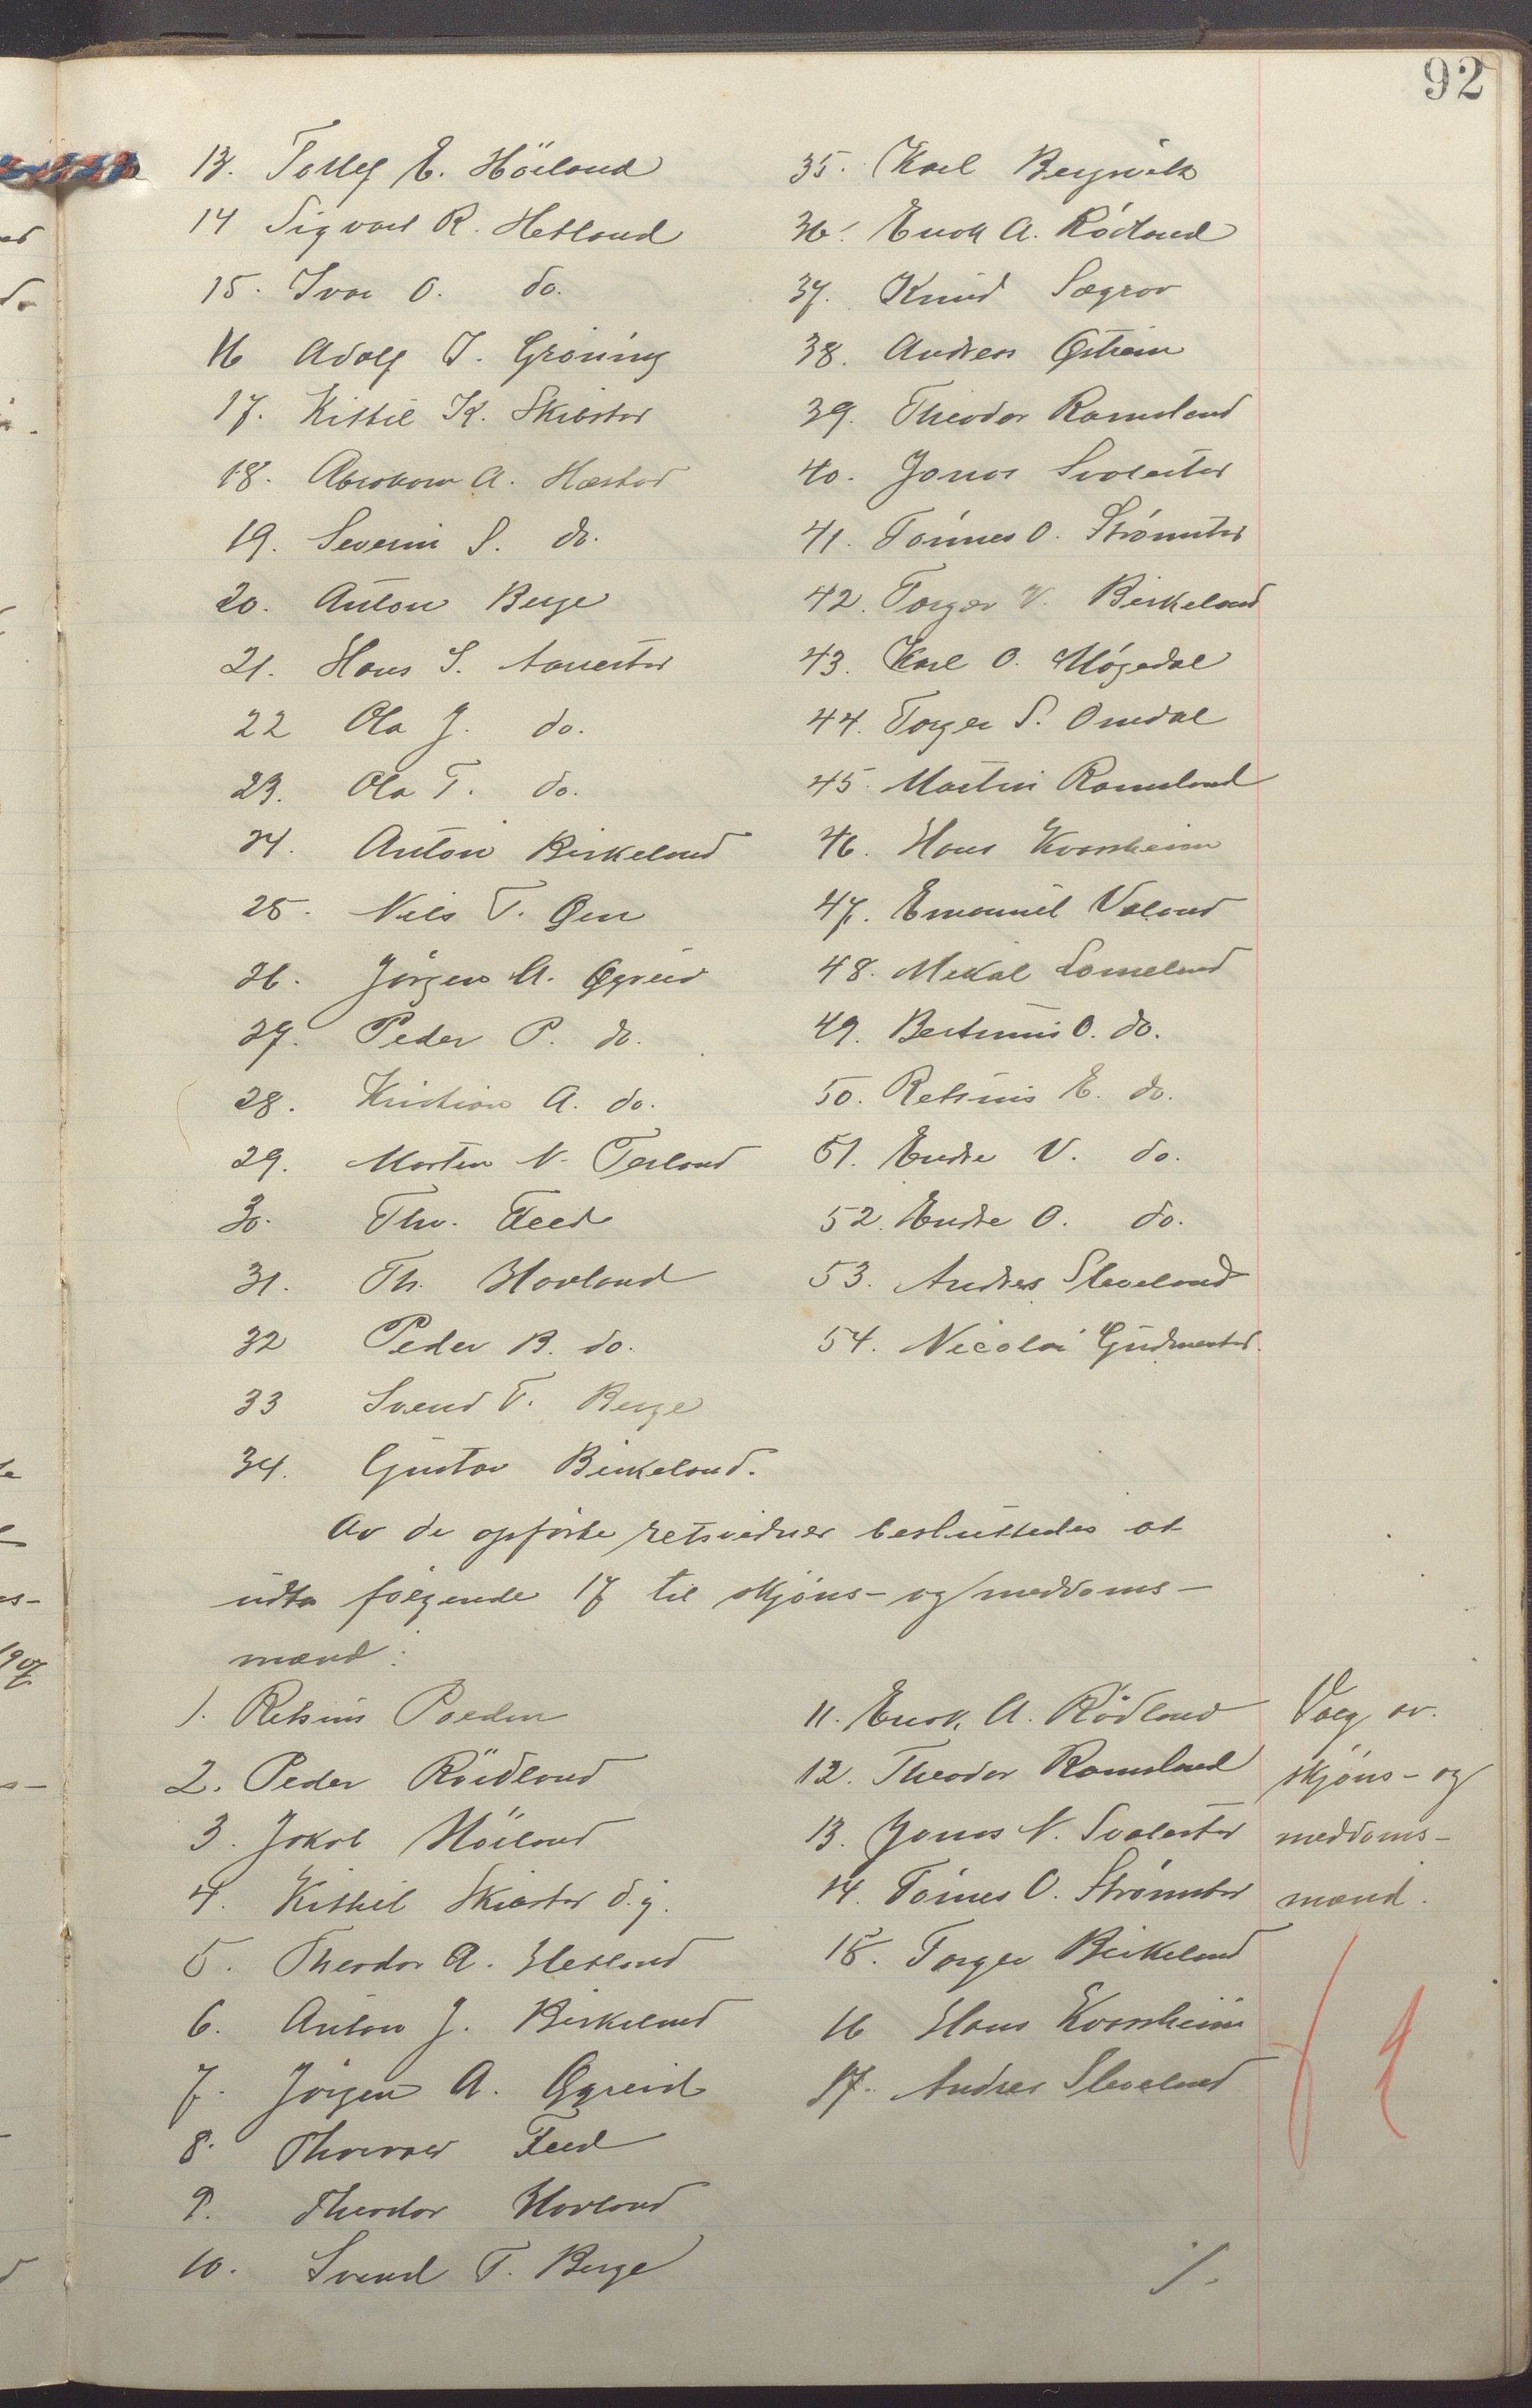 92
13. Tollef E. Höiland
14 Sigvart R. Hetland
15. Ivar O. do.
16 Adolf T. Gröning
17. Kittil K. Skibstad
18. Abraham A. Hæstad
19. Severin S. do.
20. Anton Berge
21. Hans S. Aarrestad
22 Ola J. do.
23. Ola T. do.
24. Anton Birkeland
25. Nils T. Øen
26. Jörgen A. Øgreid
27. Peder P. do.
28. Kristian A. do.
29. Morten N. Terland
30. Thv. Feed
31. Th. Hovland
32 Peder B. do.
33 Svend T. Berge
34. Gustav Birkeland.
35. Karl Bergvik
36. Enok A. Rödland
37. Knud Sægrov
38. Andreas Østrem
39. Theodor Ramsland
40. Jonas Svalestad
41. Tönnes O. Strømstad
42. Torger V. Birkeland
43. Karl O. Møgedal
44. Torger S. Omdal
45. Martin Ramsland
46. Hans Kvassheim
47. Emanuel Valand
48. Mikal Lomeland
49. Bertinius O. do.
50. Retsius E. do.
51. Endre V. do.
52. Endre O. do.
53. Andreas Sleveland
54. Nicolai Gudmestad.
Av de opförte retsvidner besluttedes at
udta følgende 17 til skjöns- og meddoms-
mænd:
1. Retsius
2. Peder Röidland
3. Jakob Höiland
4. Kittil Skibstad d.y.
5. Theodor A. Hetland
6. Anton J. Birkeland
7. Jörgen A. Øgreid
8. Thorvald Feed
9. Theodor Hovland
10. Svend T. Berge
11. Enok A. Rödland
12. Theodor Ramsland
13. Jonas N. Svalestad
14. Tönnes O. Strømstad
15. Torger Birkeland
16 Hans Kvassheim
17. Andreas Sleveland
Valg av.
skjöns- og
meddoms-
mænd.
./.